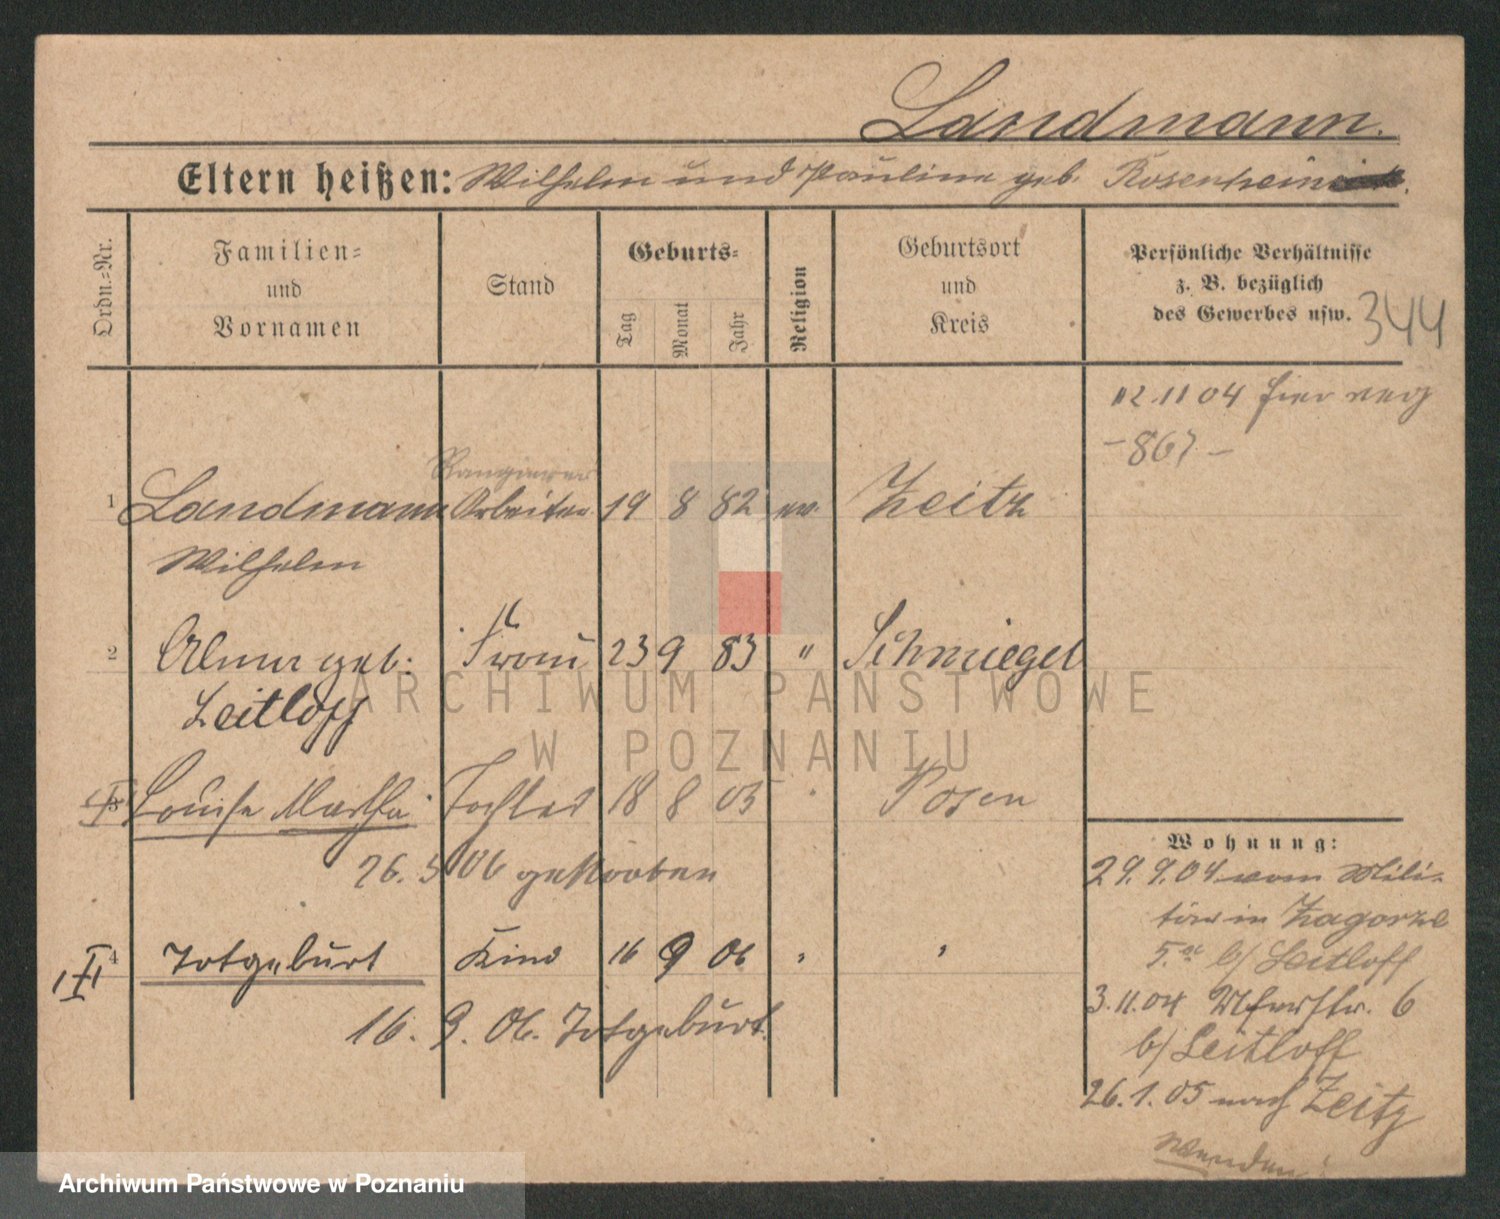 Landmann.
Eltern heißen: Wilhelm und Pauline geb. Rosenhein
Ordn.=Nr.
Familien= und Vornamen
Stand
Geburts=
Tag
Monat
Jahr
Religion
Geburtsort und Kreis
Persönliche Verhältnisse
z. B. bezüglich
des Gewerbes usw.
344
12.11 04 hier
-867-
Rangierer
1 Landmann Arbeiter 19 8 82 ev. Zeitz
Wilhelm
2 Alma geb. Frau 23 9 83 " Schmiegel
Leitloff
3 Louise Martha Tochter 18 8 05 " Posen
26. 5 06 gestorben
4 Totgeburt Kind 16 9 06 " "
16. 9. 06. Totgeburt.
Wohnung:
29. 9. 04 vom Mili-
tär in Zagorze
5. b/ Leitloff
3. 11. 04 6
b/ Leitloff
26. 1. 05 nach Zeitz
Wenden!
ARCHIWUM PAŃSTWOWE
W POZNANIU
Archiwum Państwowe w Poznaniu